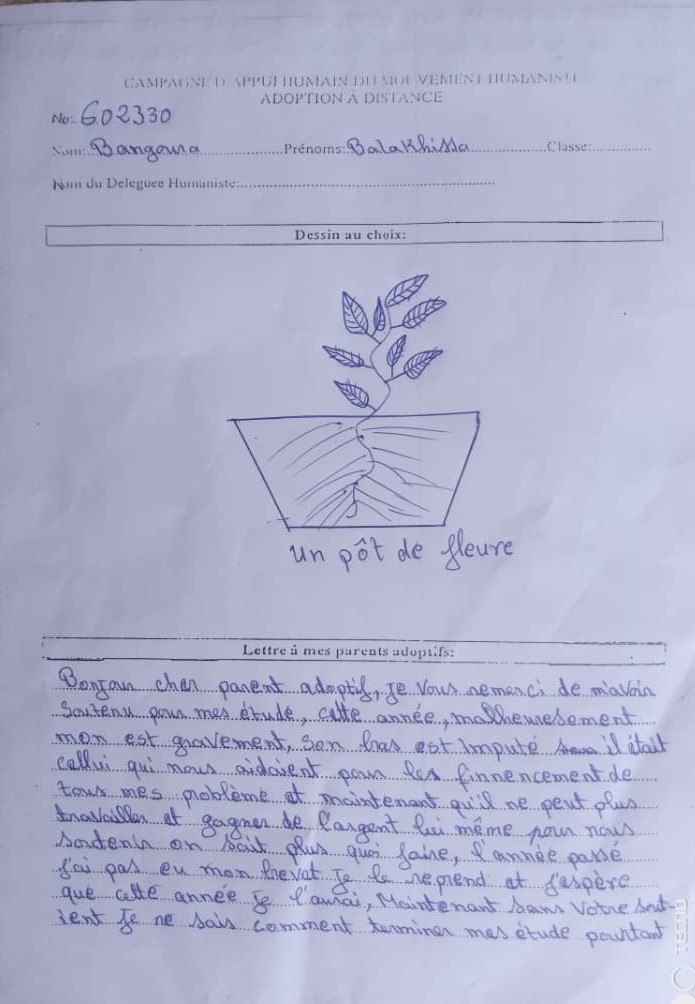 CAMPAGNE D'APPUI HUMAIN DU MOUVEMENT HUMANISTE
ADOPTION À DISTANCE
No: 602330
Nom: Bangoura Prénoms: Balakhissa Classe:
Nom du Deleguee Humaniste:
Dessin au choix:
un pôt de fleure
Lettre á mes parents adoptifs:
Bonjour cher parent adoptif, je vous remerci de m'avoir
Soutenu pour mes étude, cette année, malheuresement
mon est gravement, son bras est Imputé il était
cellui qui nous aidaient pour les finnencement de
tous mes problème et maintenant qu'il ne peut plus
travailler et gagner de l'argent lui même pour nous
soutenir on sait plus quoi faire, l'année passé
j'ai pas eu mon brevat je le reprend et j'espère
que cette année je l'aurai, Maintenant sans votre sout-
ient je ne sais comment terminer mes étude pourtant
TECNO